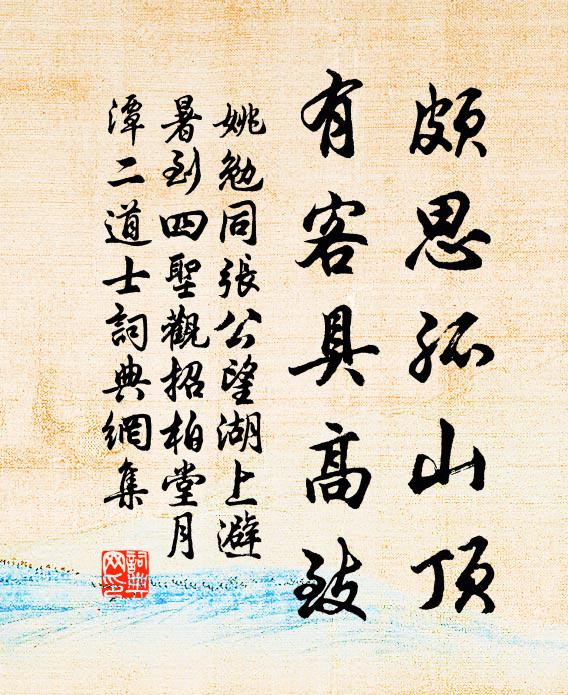 頗思孤山頂
有客具高致
姚勉同張公望湖上避
暑到四聖觀招柏堂月
潭二道士詞典網集
詞典網印